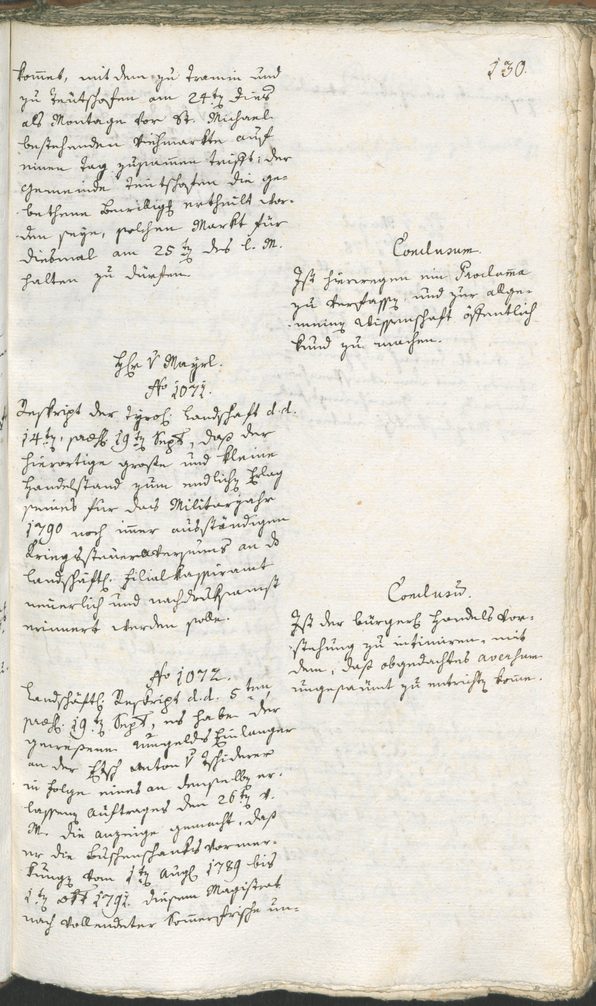 130.
kommet, mit dem zu Tramin und
zu Teutschofen am 24ten dies
als Montage vor St. Michael
bestehenden Viehmarkte auf
einen Tag zusammen trifft; der
Gemeinde Teutschofen die ge-
bethene Bewilligg ertheilt wor-
den seye, solchen Markt für
diesmal am 25ten des l. M.
halten zu dürfen.
Conclusum.
Ist hierwegen ein Proclama
zu verfassen, und zur allge-
meinen Wissenschaft öffentlich
kund zu machen.
Hr. v Mayrl.
No 1071.
Reskript der Tyrol. Landschaft d. d.
14ten, praes. 19ten Sept., daß der
hierortige große und kleine
Handelstand zum endlichen Erlag
seines für das Militarjahr
1790 noch immer ausständigen
Kriegssteueraversums an das
landschäftl. Filialkassieramt
neuerlich und nachdrucksamst
erinnert werden solle.
Conclusum.
Ist der bürgerl. Handels Vor-
stehung zu intimiren, mit
dem, daß obgedachtes aversum
ungesäumt zu entrichten komme.
No 1072.
Landschäftl. Reskript d. d. 5ten,
praes. 19ten Sept., es habe der
gewesene Umgelds Einlanger
an der Etsch Anton v Tschiderer
in Folge eines an denselben er-
lassenen Auftrages den 26ten v.
M. die Anzeige gemacht, daß
er die Buschenschanks Vormer-
kungen vom 1ten Aug. 1789 bis
1ten 1791. diesem Magistrat
nach vollendeter Sommerfrische un-